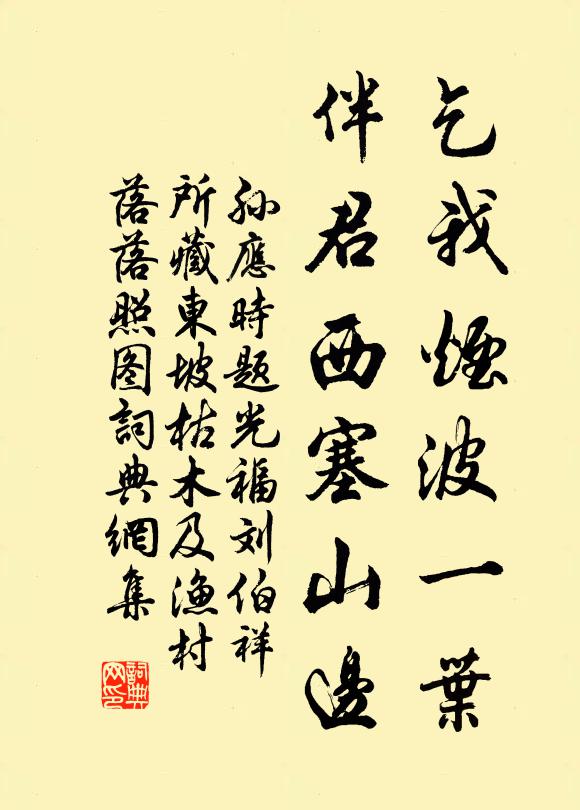 乞我煙波一葉
伴君西塞山邊
孙應時題光福刘伯祥
所藏東坡枯木及渔村
落落照图詞典網集
詞典
网印